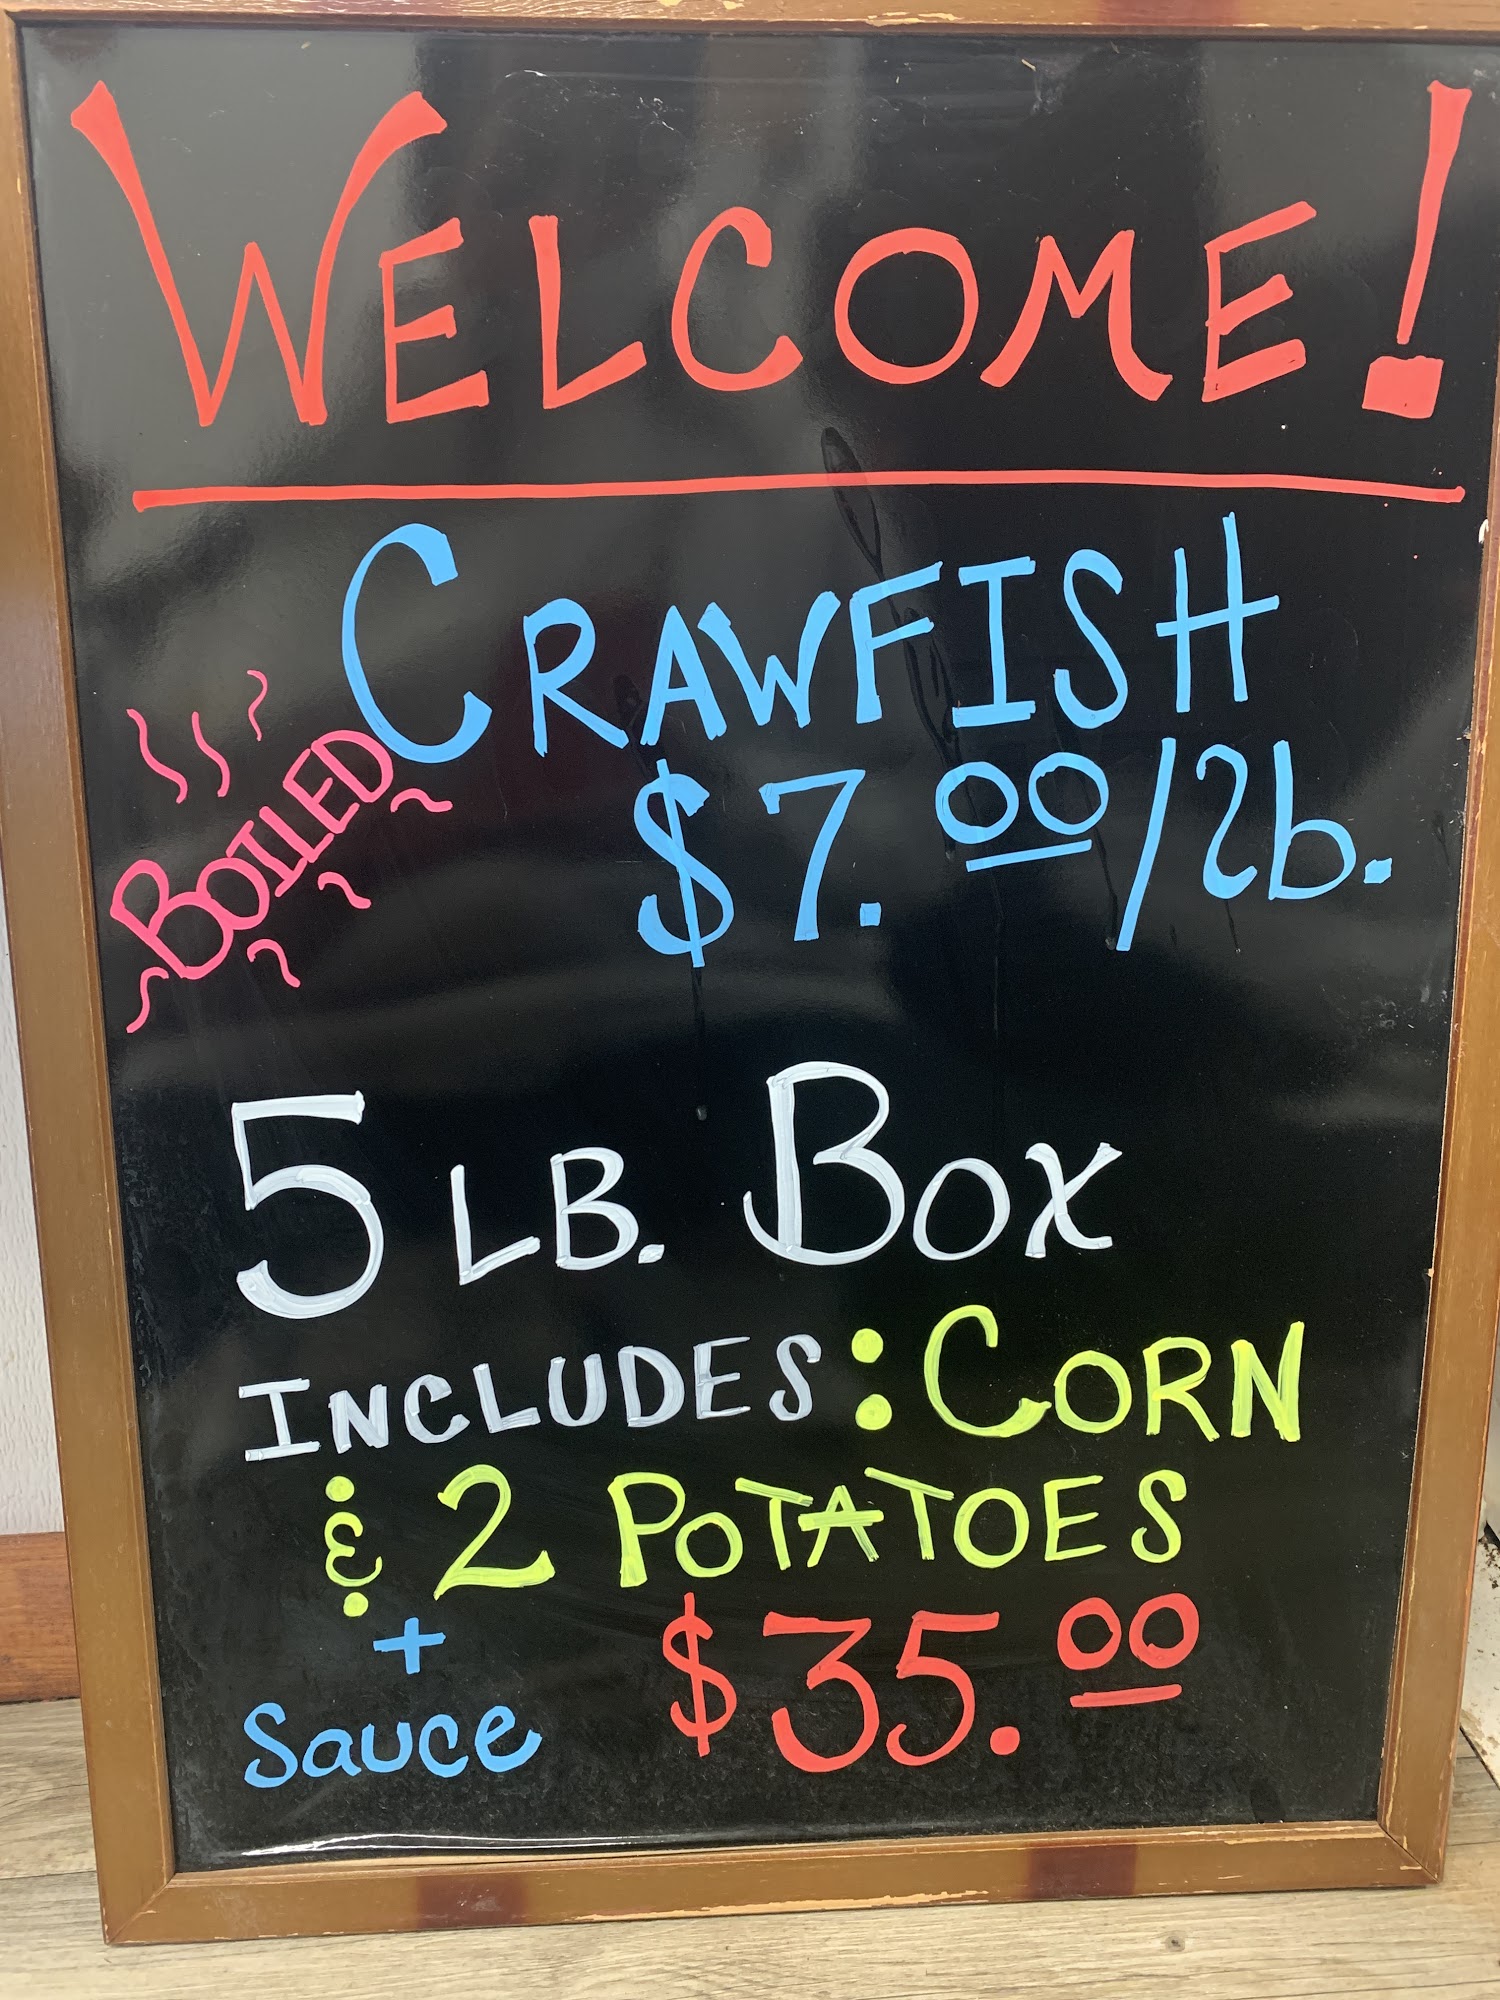 WELCOME!
CRAWFISH
BOILED
$7.00/lb.
5 LB. BOX
INCLUDES: CORN
& 2 POTATOES
+
Sauce
$35.00